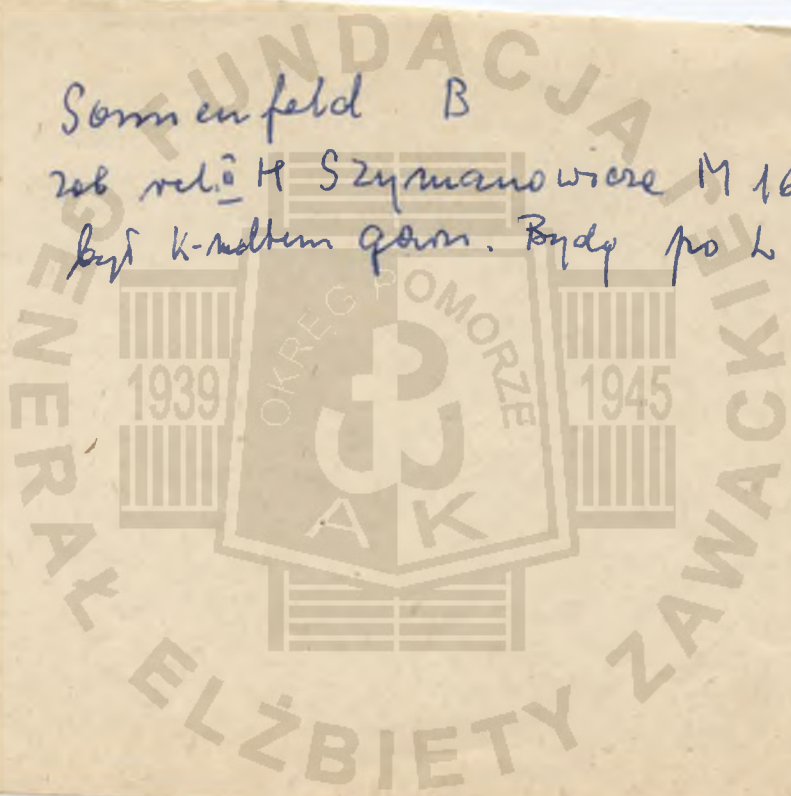 Sonnenfeld B
zob rel. H Szymanowicza M 16
był K-ndtem garn. Bydg po L
FUNDACJA GENERAŁ ELŻBIETY ZAWACKIEJ
OKRĘG POMORZE
1939 1945
AK